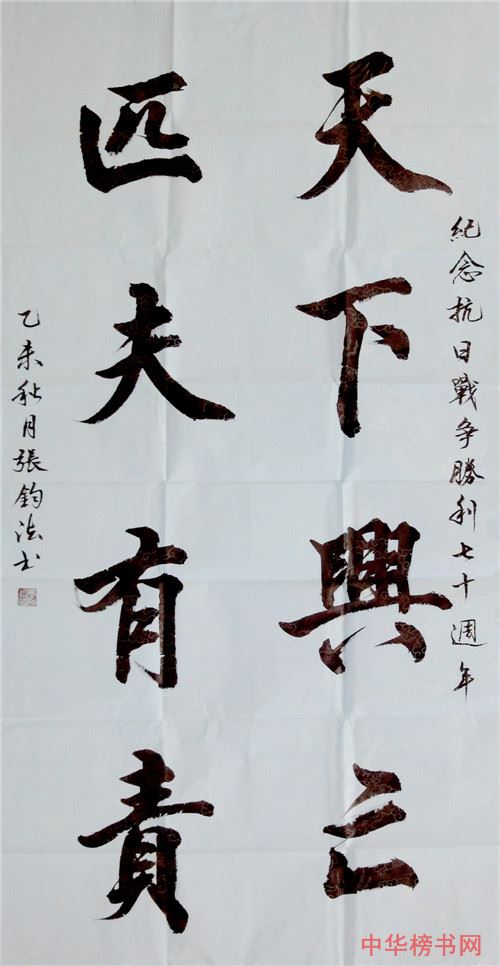 紀念抗日戰争勝利七十週年
天下興亡
匹夫有責
乙未秋月張鈞法书
中华榜书网